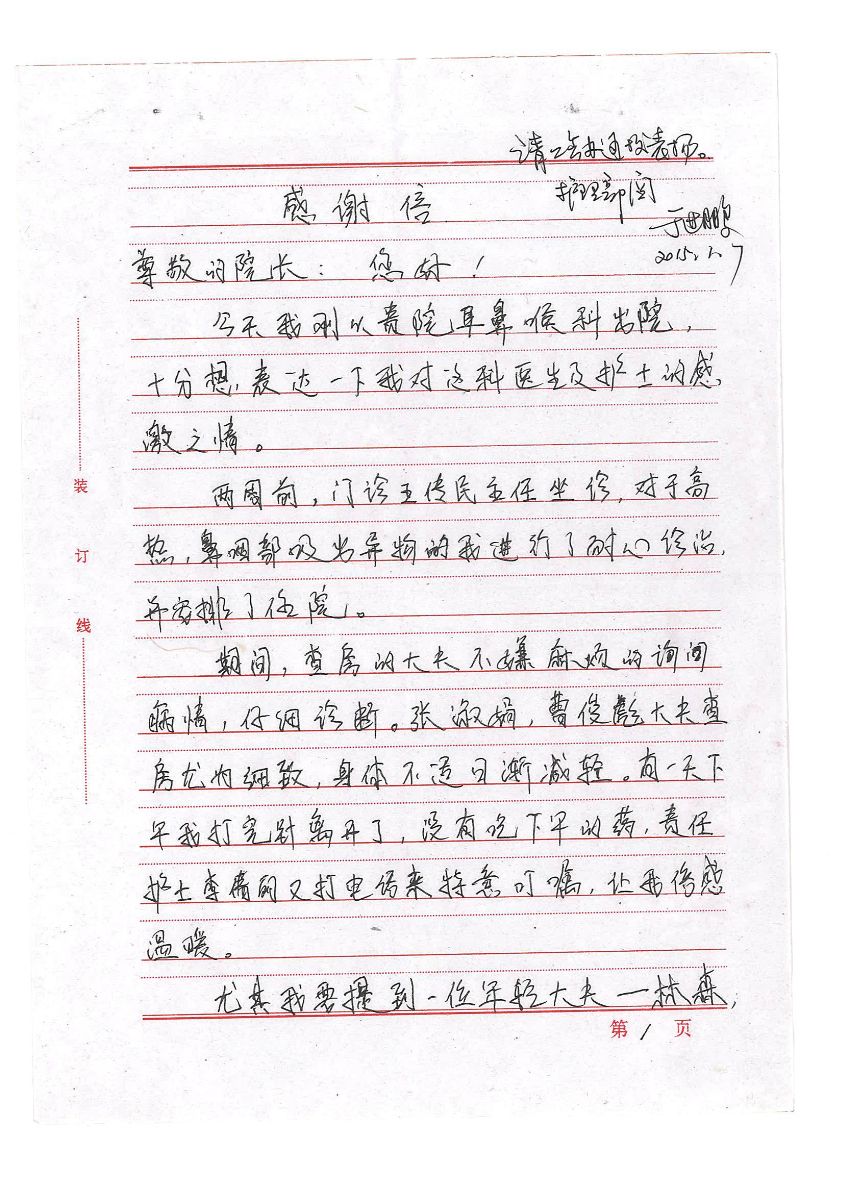 请工会办通报表扬。
护理部阅
2015.1.7
感谢信
尊敬的院长：您好！
今天我刚从贵院耳鼻喉科出院，
十分想表达一下我对这科医生及护士的感
激之情。
两周前，门诊王传民主任坐诊，对于高
热，鼻咽部吸出异物的我进行了耐心诊治，
并安排了住院。
期间，查房的大夫不嫌麻烦的询问
病情，仔细诊断。张淑娟，曹俊彪大夫查
房尤为细致，身体不适日渐减轻。有一天下
午我打完针离开了，没有吃下午的药，责任
护士李倩丽又打电话来特意叮嘱，让我倍感
温暖。
尤其我要提到一位年轻大夫—林森，
装
订
线
第1页